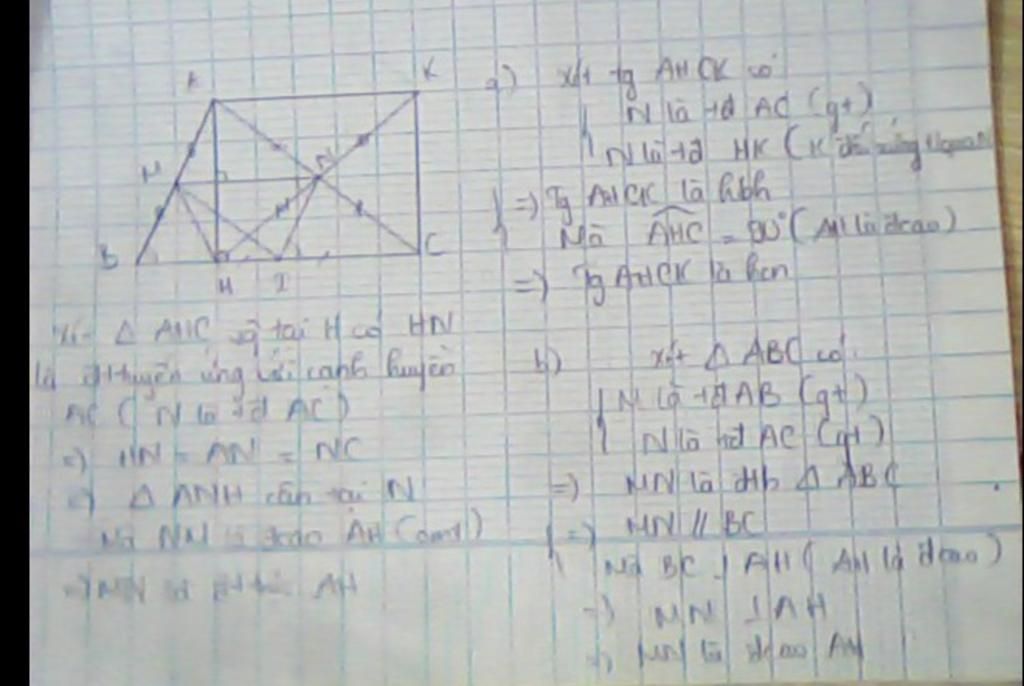 A
K
M
N
B
H
I
C
a) xét tg AHCK có
N là tđ AC (gt)
N là tđ HK (K đối xứng
=) Tg AHCK là hbh
Mà AHC = 90° (AH là đcao)
=) Tg AHCK là hcn
b) xét △ ABC có
M là tđ AB (gt)
N là tđ AC (gt)
=) MN là đtb △ ABC
=) MN // BC
Mà BC ⊥ AH (AH là đcao)
=) MN ⊥ AH
=) MN là đcao AH
Xét △ AHC tại H có HN
là đ tuyến ứng với cạnh huyền
AC (N là tđ AC)
=) HN = AN = NC
=) △ ANH cân tại N
Mà NM là đcao AH (cmt)
=) MN là AH